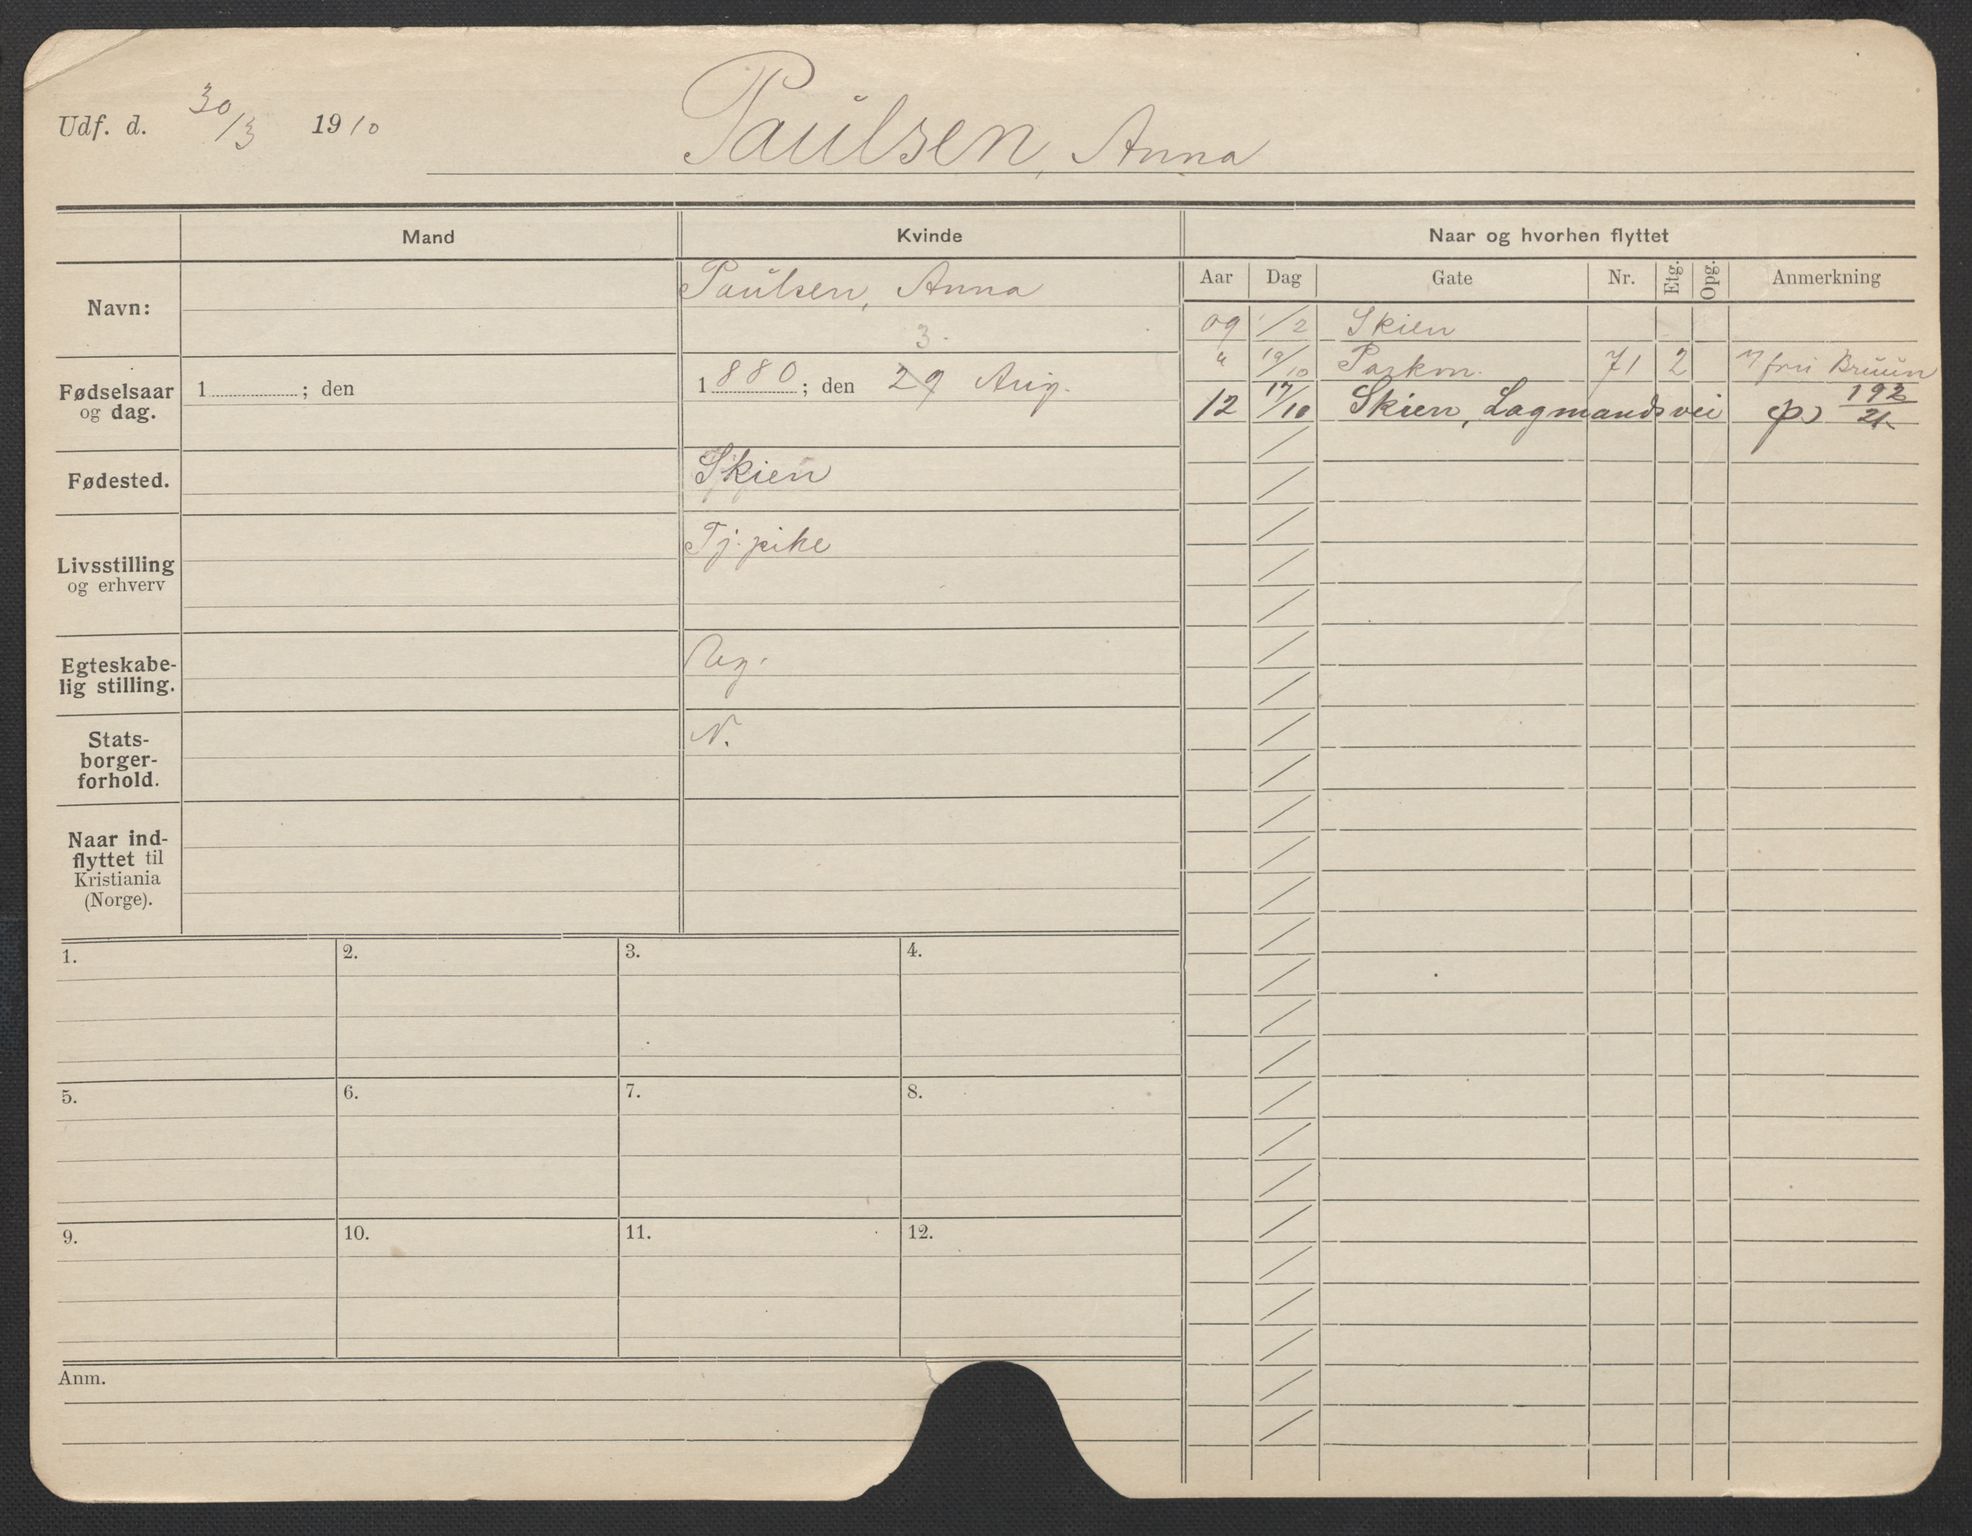 Udf. d. 30/3 1910 Paulsen, Anna
Mand Kvinde Naar og hvorhen flyttet
Aar Dag Gate Nr. Etg. Opg. Anmerkning
Navn: Paulsen, Anna
3.
Fødselsaar og dag. 1 ; den 1880 ; den 29 Aug.
Fødested. Skien
Livsstilling og erhverv Tj. pike
Egteskabe-
lig stilling. Ug.
Stats-
borger-
forhold. N.
Naar ind-
flyttet til
Kristiania
(Norge).
09 1/2 Skien
" 19/10 Parkvn. 71 2 fru Bruun
12 17/10 Skien, Lagmandsvei 192/21
1. 2. 3. 4.
5. 6. 7. 8.
9. 10. 11. 12.
Anm.